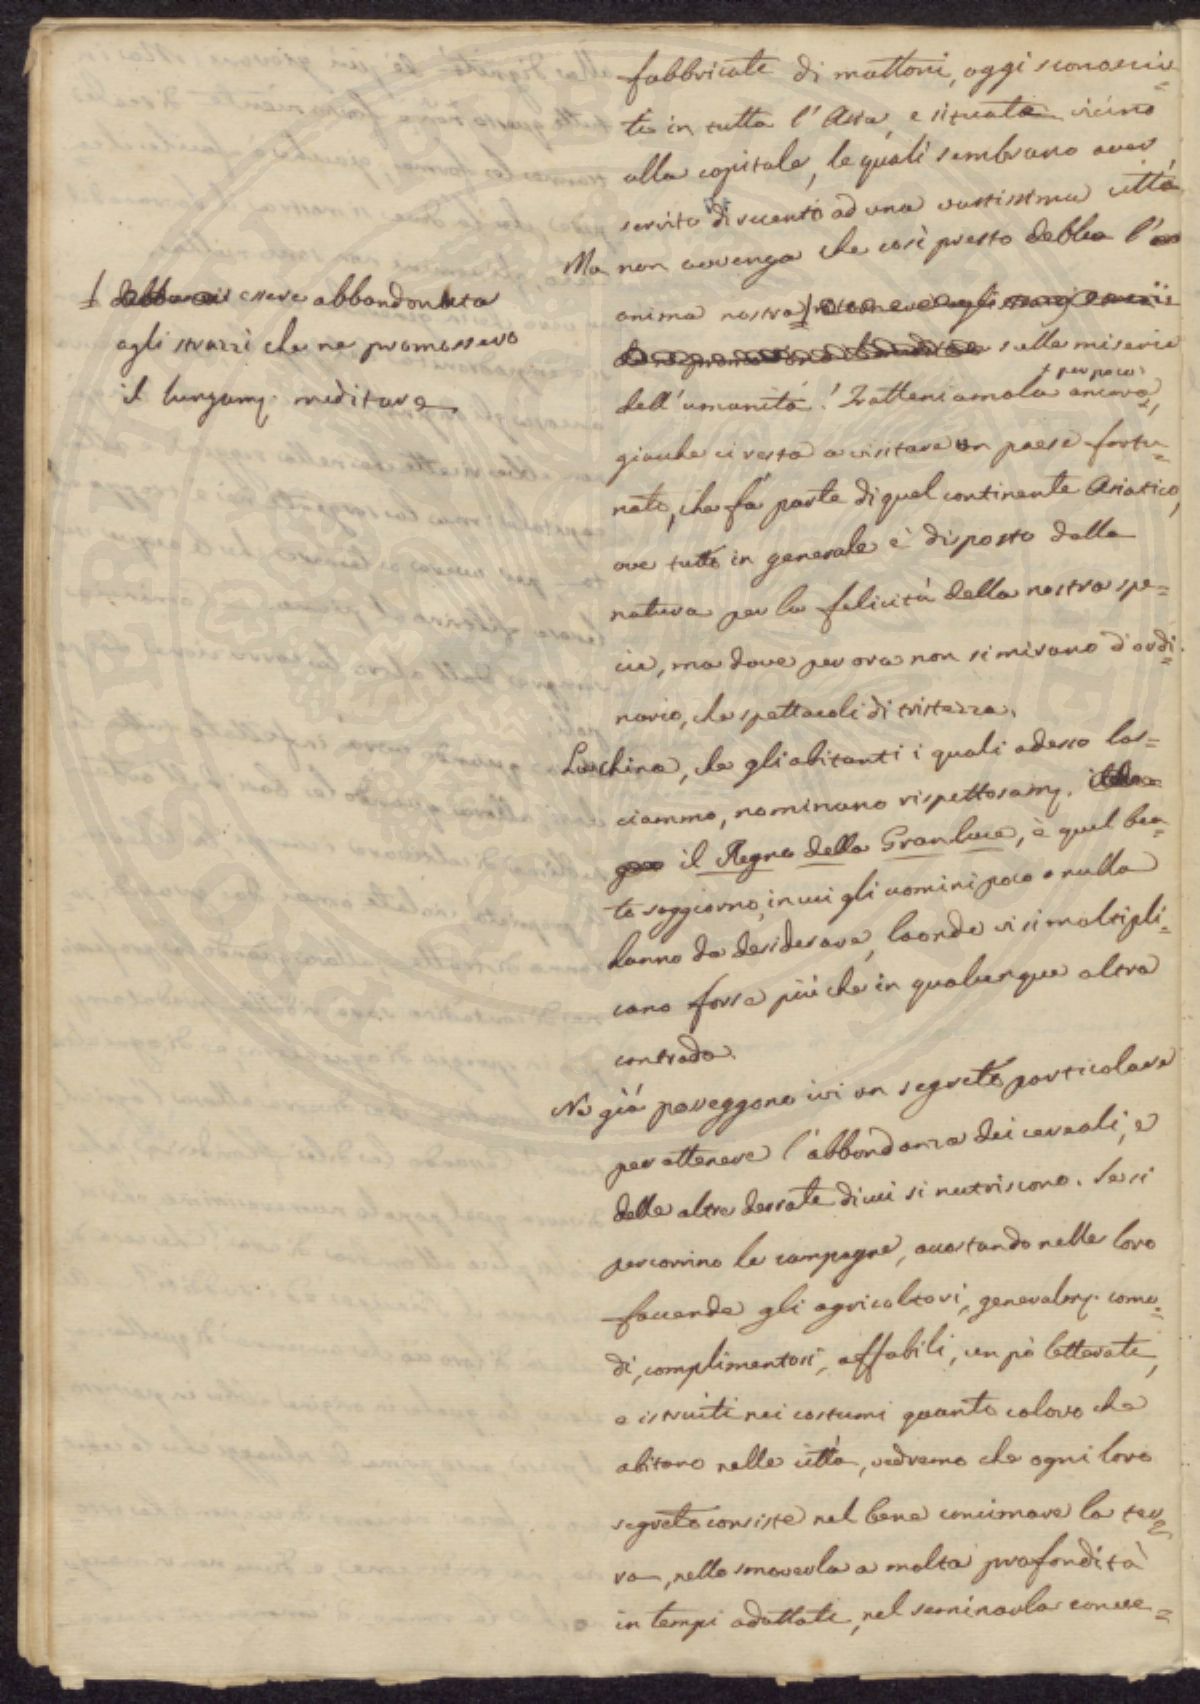 fabbricate di mattoni, oggi sconosciu=
te in tutta l'Asia, e situate vicino
alla capitale, le quali sembrano aver
servito di recinto ad una vastissima città
Ma non avvenga che così presto debba l'
anima nostra sulle miserie
dell'umanità! Tratteniamola per poco ancora,
giacche ci resta a visitare un paese fortu=
nato, che fà parte di quel continente Asiatico,
ove tutto in generale è disposto dalla
natura per la felicità della nostra spe=
cie, ma dove per ora non si mirano d'ordi=
nario, che spettacoli di tristezza.
La China, che gli abitanti i quali adesso las=
ciammo, nominano rispettosamᵉ.
il Regno della Gran luce, è quel bea=
to soggiorno, in cui gli uomini poco o nulla
hanno da desiderare, laonde vi si moltipli=
cano forse più che in qualunque altra
contrada.
Ne già posseggono ivi un segreto particolare
per ottenere l'abbondanza dei cereali, e
delle altre derrate di cui si nutriscono. Se si
percorrino le campagne, accostando nelle loro
faccende gli agricoltori, generalmᵉ. como=
di, complimentosi, affabili, un pò letterati,
e istruiti nei costumi quanto coloro che
abitano nelle città, vedremo che ogni loro
segreto consiste nel bene concimare la ter=
ra, nello smoverla a molta profondità
in tempi adattati, nel seminarla conve=
essere abbandonata
agli strazzi che ne promossero
il lungamᵉ. meditare